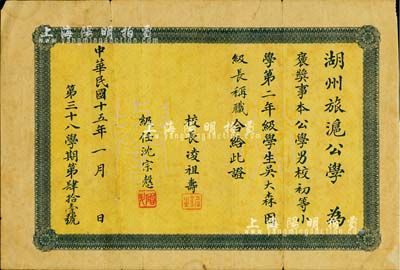 湖州旅滬公學 為
褒獎事本公學男校初等小
學第二年級學生吳大森因
級長稱職合給此證
校長凌祖壽
級任沈宗彪
中華民國十五年一月 日
第三十八學期第肆拾壹號
上海陽明拍賣
上海陽明拍賣
上海陽明拍賣